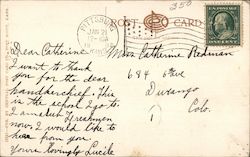 350
PITTSBURG
JAN 21
POST CARD
Dear Catherine
I want to thank
you for the dear
handkerchief. this
is the school I go to.
I am a Freshmen
now. I would like to
hear from you.
Yours Lovingly Lucile
Miss Catherine Redman
684 6 Ave
Durango
Colo.